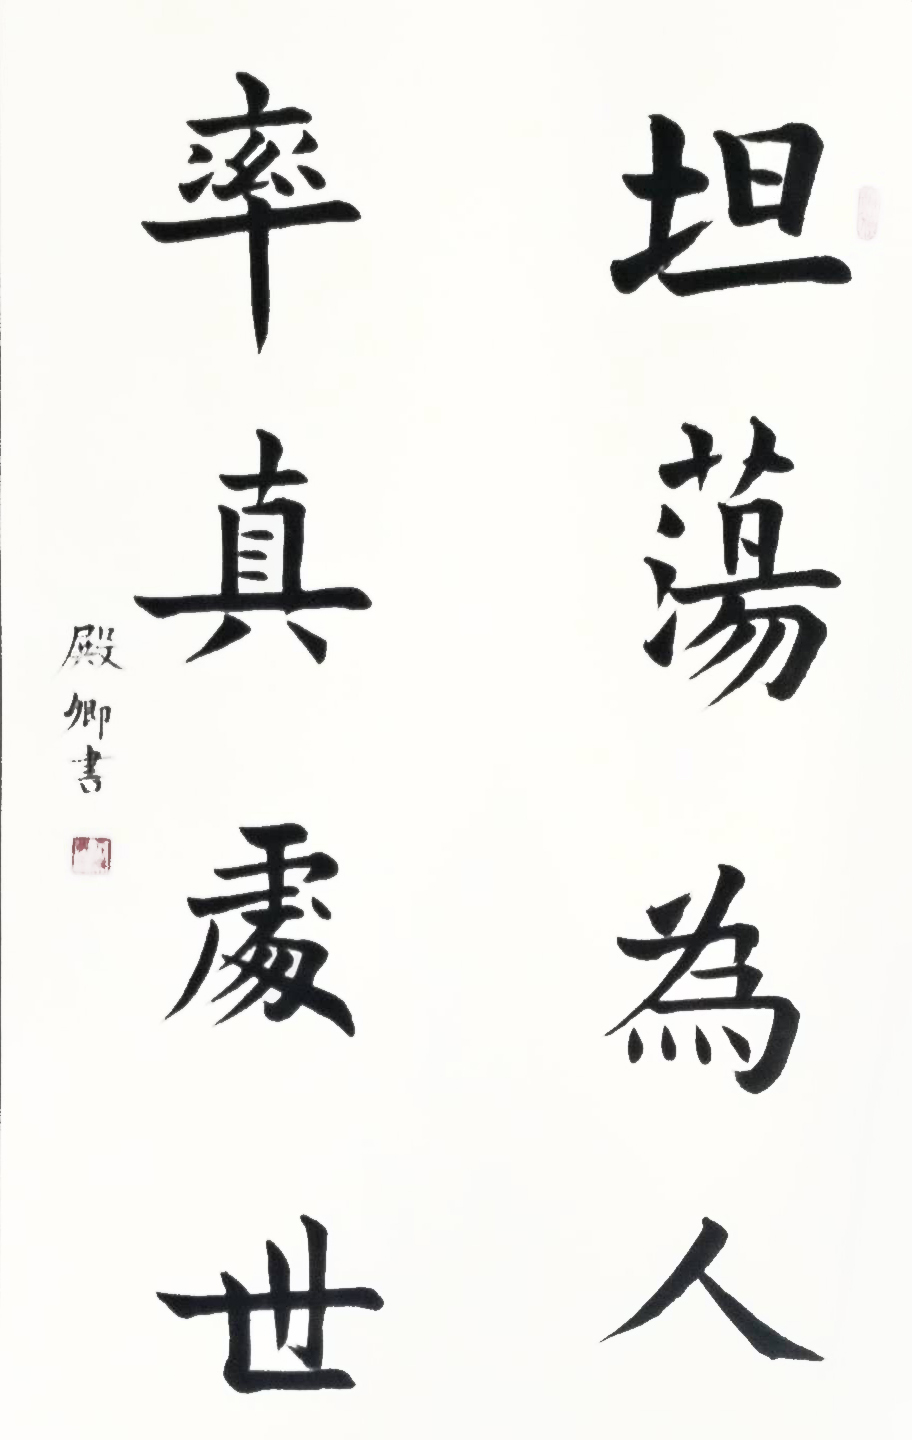 坦蕩為人
率真處世
殿卿書